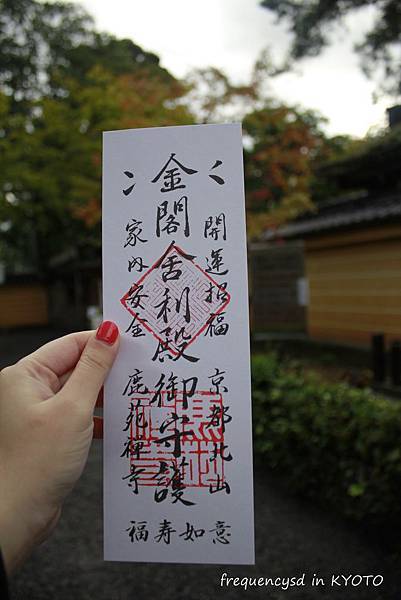 開運招福 京都北山
金閣舎利殿御守護
家内安全 鹿苑禅寺
福寿如意
frequencysd in KYOTO